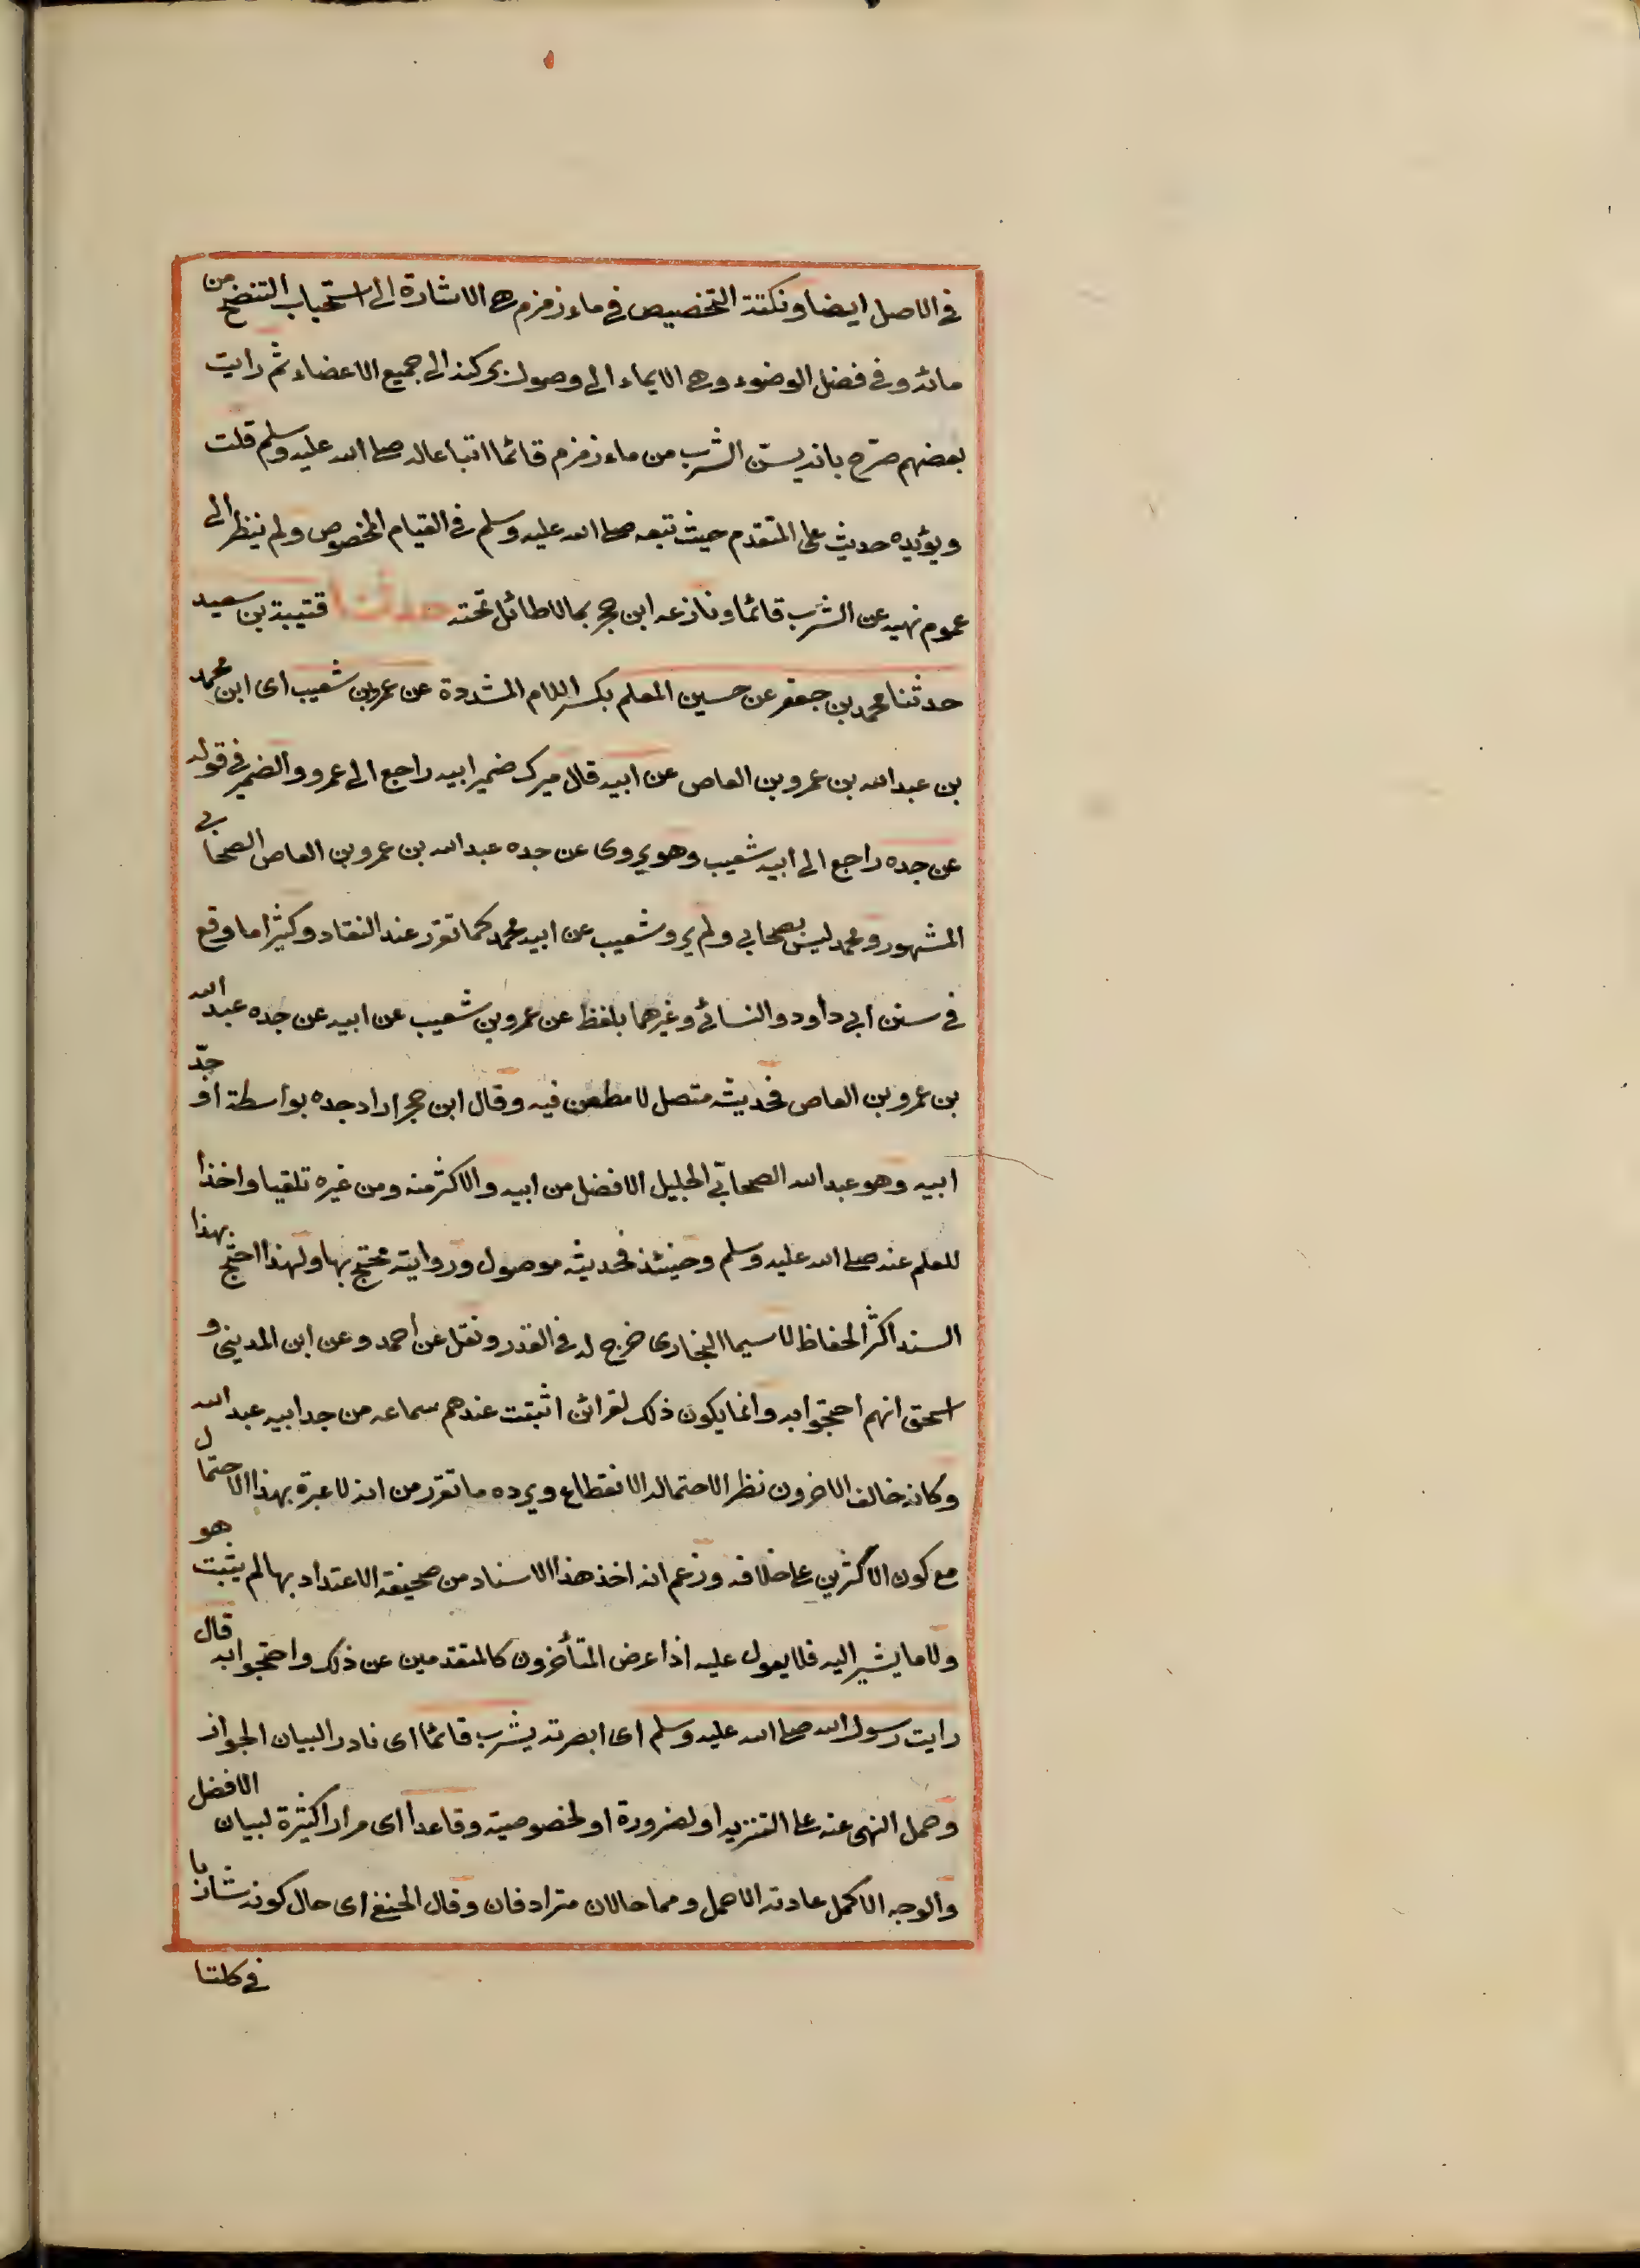 في الاصل ايضا ونكتة التخصيص في ماء زمزم هي الاشارة الى استحباب التنضح من
مائه وفي فضل الوضوء وهي الايماء الى وصول بركته الى جميع الاعضاء ثم رايت
بعضهم صرح بانه يسن الشرب من ماء زمزم قائما اتباعا له صلى الله عليه وسلم قلت
ويؤيده حديث علي المتقدم حيث تبعه صلى الله عليه وسلم في القيام المخصوص ولم ينظر الى
عموم نهيه عن الشرب قائما ونازعه ابن حجر بما لا طائل تحته حدثنا قتيبة بن سعيد
حدثنا محمد بن جعفر عن حسين المعلم بكسر اللام المشددة عن عمرو بن شعيب اى ابن محمد
بن عبد الله بن عمرو بن العاص عن ابيه قال ميرك ضمير ابيه راجع الى عمرو والضمير في قوله
عن جده راجع الى ابيه شعيب وهو يروى عن جده عبد الله بن عمرو بن العاص الصحابي
المشهور ومحمد ليس بصحابي ولم يرو شعيب عن ابيه محمد كما تقرر عند النقاد وكثيرا ما وقع
في سنن ابي داود والنسائي وغيرهما بلفظ عن عمرو بن شعيب عن ابيه عن جده عبد الله
بن عمرو بن العاص فحديثه متصل لا مطعن فيه وقال ابن حجر اراد جده بواسطة او جدّ
ابيه وهو عبد الله الصحابيّ الجليل الافضل من ابيه والاكثر منه ومن غيره تلقيا واخذا
للعلم عنه صلى الله عليه وسلم وحينئذ فحديثه موصول وروايته محتج بها ولهذا احتج بهذا
السند اكثر الحفاظ لا سيما البخارى خرج له في القدر ونقل عن احمد وعن ابن المديني و
اسحق انهم احتجوا به وانما يكون ذلك لقرائن اثبتت عندهم سماعه من جد ابيه عبد الله
وكانه خالف الاخرون نظر الاحتمال الانقطاع ويرده ما تقرر من انه لا عبرة بهذا الاحتمال
مع كون الاكثرين على خلافه وزعم انه اخذ هذا الاسناد من صحيفة الاعتداد بها لم يثبت هو
ولا ما يشير اليه فلا يعول عليه اذا عرض المتأخرون كالمتقدمين عن ذلك واحتجوا به قال
رايت رسول الله صلى الله عليه وسلم اى ابصرته يشرب قائما اى نادر البيان الجواز
وحمل النهى عنه على التنزيه او لضرورة او لخصوصية وقاعدا اى مرارا كثيرة لبيان الافضل
والوجه الاكمل عادته الاجمل ومما حالان مترادفان وقال الحنفي اى حال كونه شاربا
في كلتا